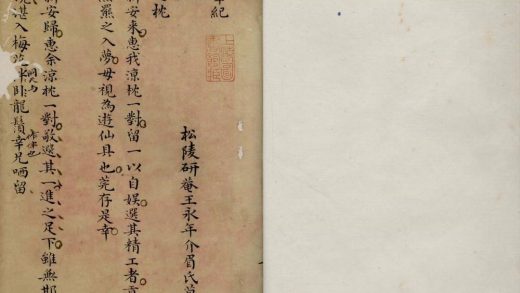 紀
松陵研菴王永年介眉氏
枕
安來惠我涼枕一對留一以自娛選其精工者
羆之入夢毋視為遊仙具也莞存是幸
安歸惠余涼枕一對敬選其一進之足下雖無邯
堪入梅花 臥龍鬚幸兄哂留